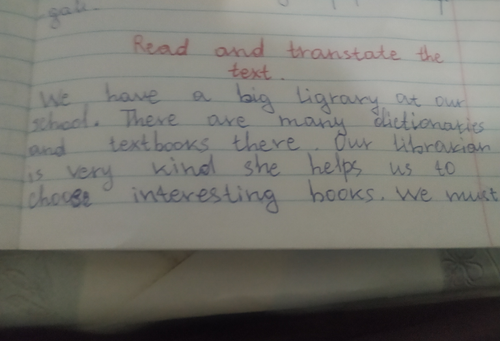 gali
Read and transtate the
text.
We have a big ligrary at our
school. There are many dictionaries
and textbooks there. Our librarian
is very kind she helps us to
choose interesting books. We must